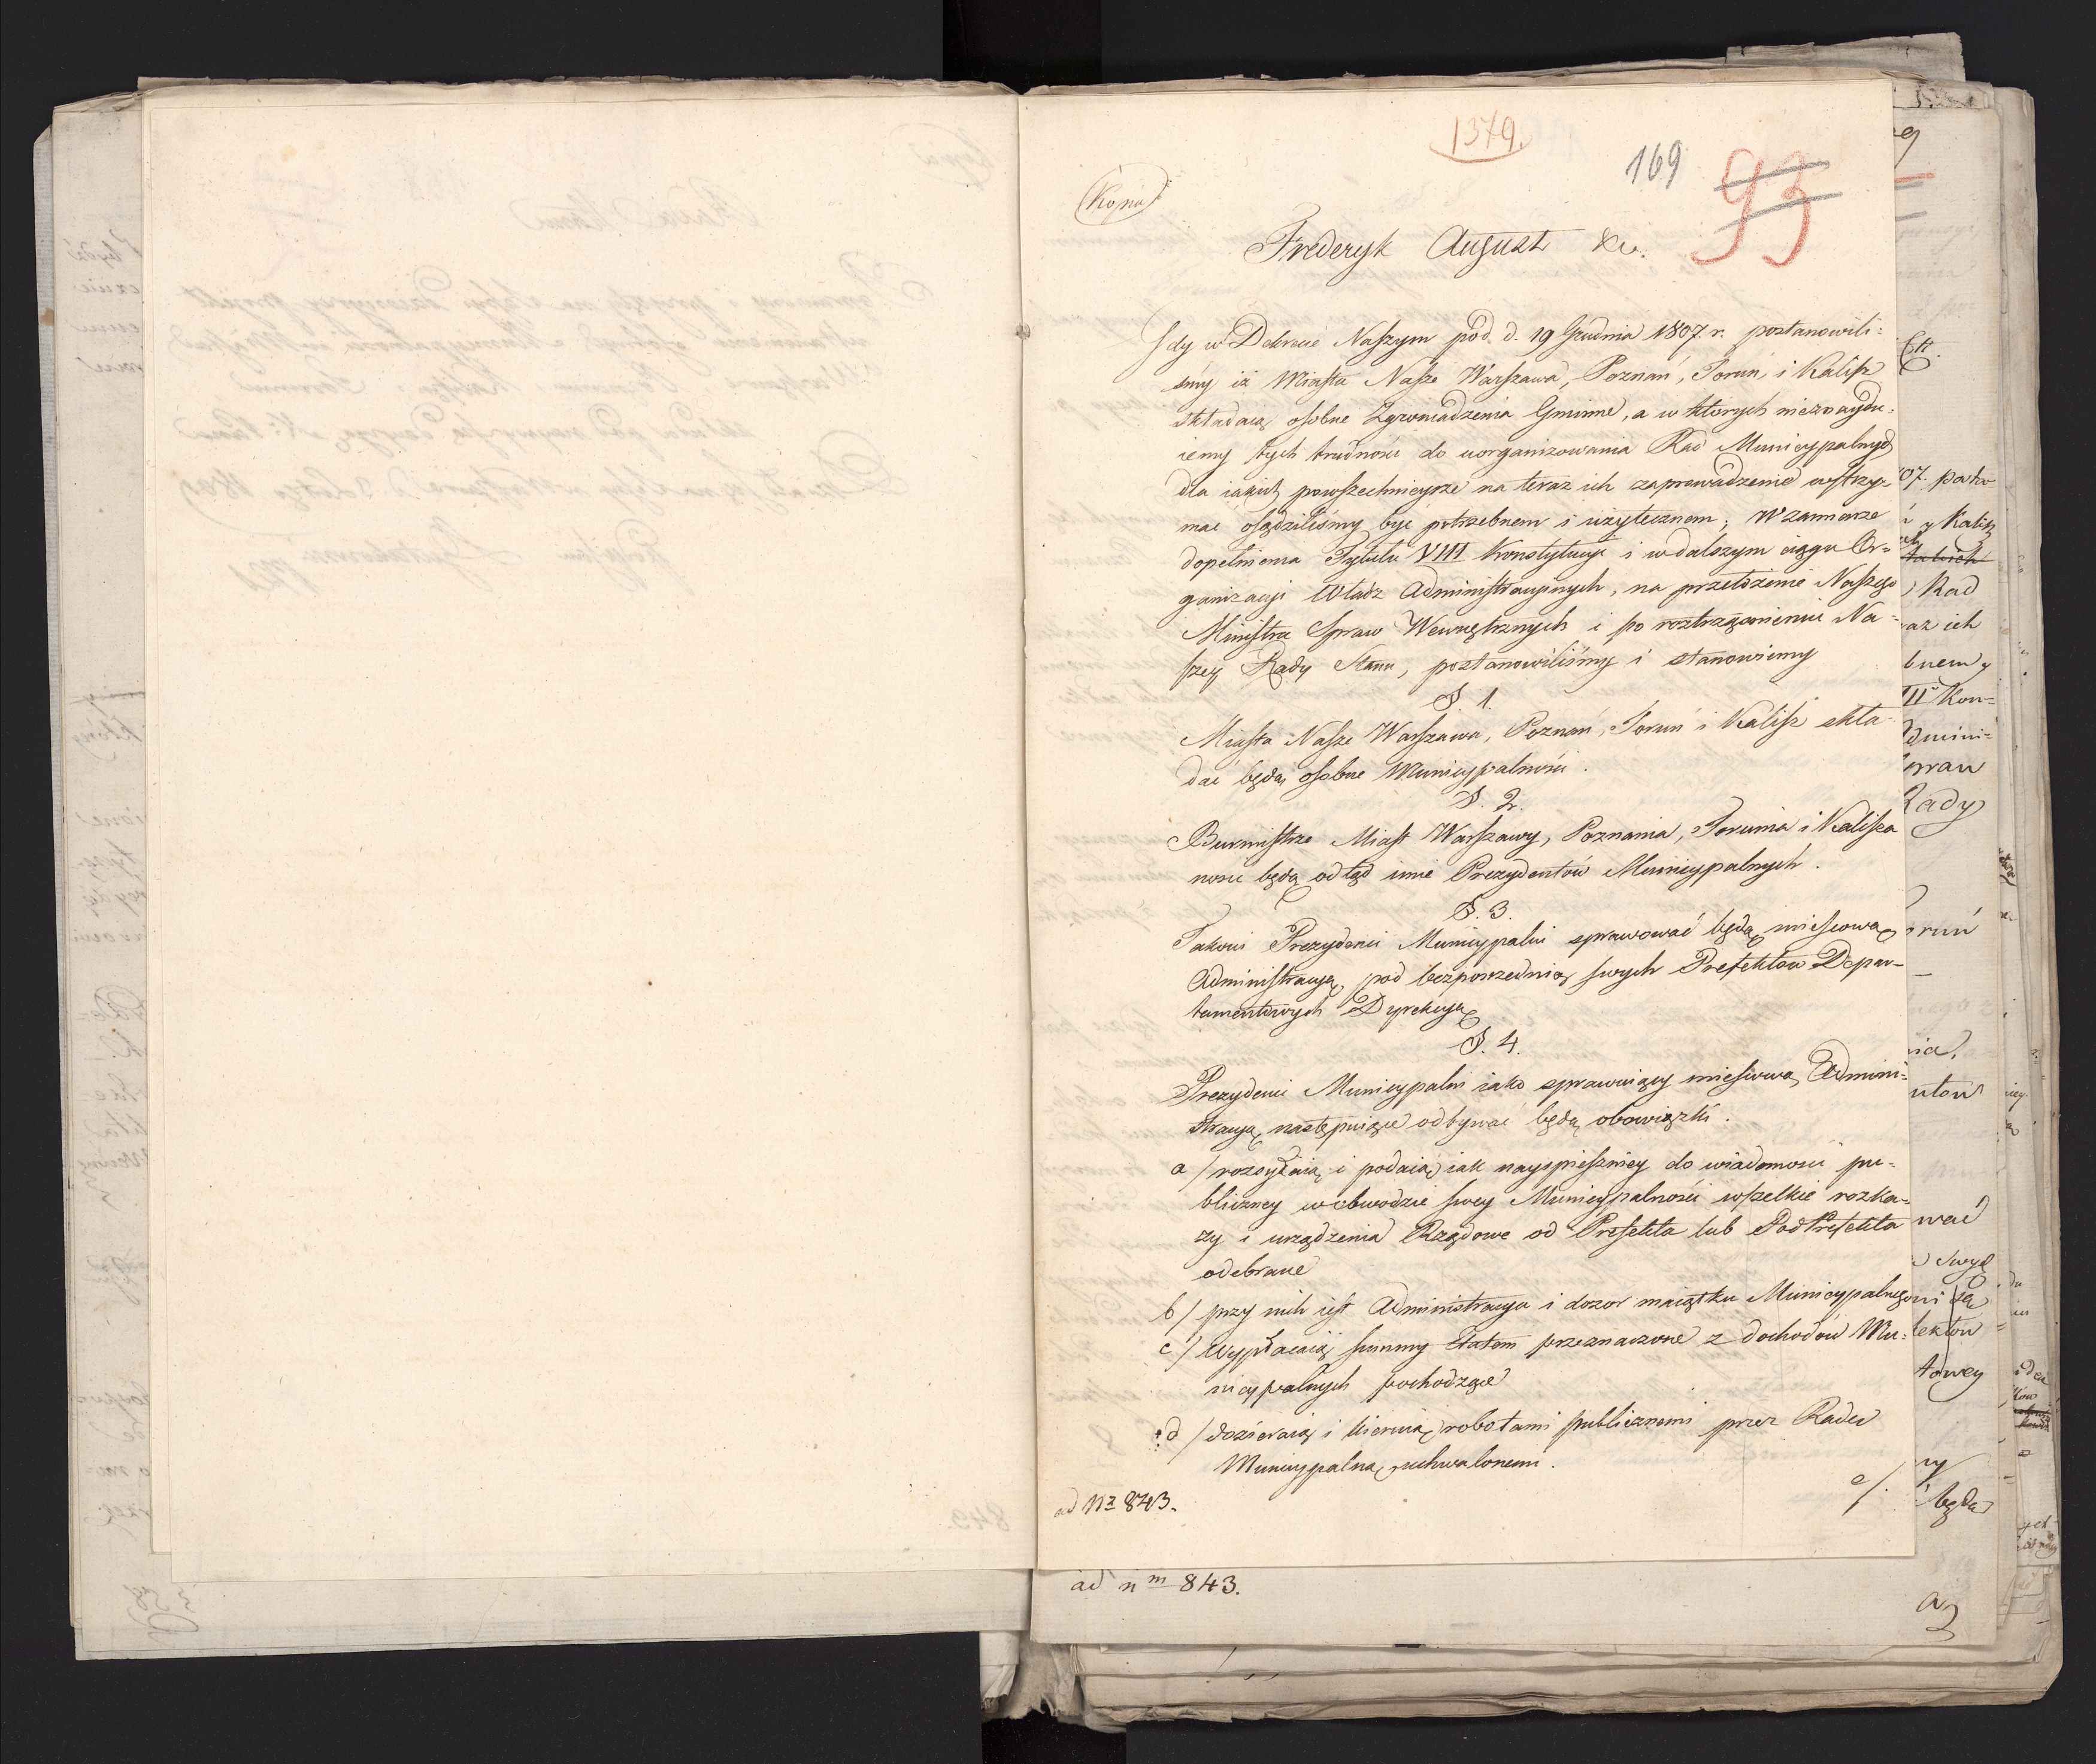 1379.
169
93
Kopia
Frederyk August &c.
Gdy w Dekrecie Naszym pod d. 19 Grudnia 1807. r. postanowili=
śmy iż Miasta Nasze Warszawa, Poznań, Toruń, i Kalisz
składaią osobne Zgromadzenia Gminne, a w których nieznaydu=
iemy tych trudności do uorganizowania Rad Municypalnych
dla iakich powszechnieysze na teraz ich zaprowadzenie wstrzy=
mać osądziliśmy być potrzebnem i użytecznem; W zamiarze
dopełnienia Tytułu VIII Konstytucyi i w dalszym ciągu Or=
ganizacyi Władz Administracyinych, na przełożenie Naszego
Ministra Spraw Wewnętrznych i po roztrząśnieniu Na=
szey Rady Stanu, postanowiliśmy i stanowiemy
§. 1.
Miasta Nasze Warszawa, Poznań, Toruń i Kalisz skła-
dać będą osobne Municypalności.
§. 2.
Burmistrze Miast Warszawy, Poznania, Torunia i Kalisza
nosić będą odtąd imie Prezydentów Municypalnych.
§. 3.
Takowi Prezydenci Municypalni sprawować będą mieyscową
Administracyą, pod bezpośrednią swych Prefektów Depar-
tamentowych Dyrekcyą
§. 4.
Prezydenci Municypalni iako sprawuiący mieyscową Admini=
stracyą następuiące odbywać będą obowiązki.
a/ rozsyłaią i podaią iak nayspieszniey do wiadomości pu=
bliczney w obwodzie swey Municypalności wszelkie rozka=
zy i urządzenia Rządowe od Prefekta lub PodPrefekta
odebrane
b/ przy nich iest Administracya i dozor maiątku Municypalnego
c/ wypłacaią summy Etatem przeznaczone z dochodów Mu=
nicypalnych pochodzące
d/ dozieraią i kieruią robotami publicznemi przez Radę
Municypalną uchwalonemi.
e/.
ad Nr 843.
ad nm 843.